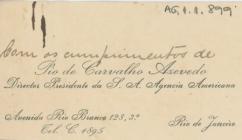 AG.1.1.899
Com os cumprimentos de
Pio de Carvalho Azevedo
Director Presidente da S. A. Agencia Americana
Avenida Rio Branco 123, 3º
Tel. C. 1895
Rio de Janeiro